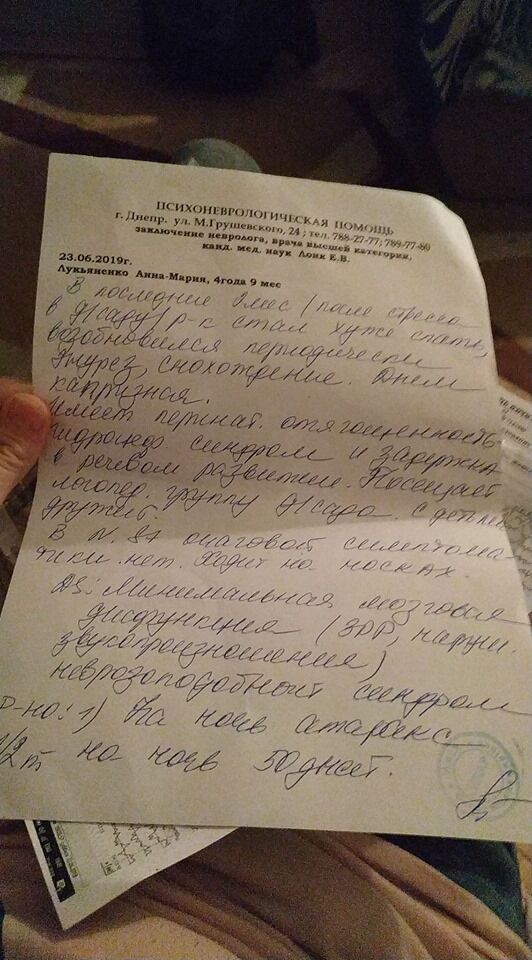 ПСИХОНЕВРОЛОГИЧЕСКАЯ ПОМОЩЬ
г. Днепр. ул. М.Грушевского, 24 ; тел. 788-27-77; 789-77-80
заключение невролога, врача высшей категории,
канд. мед. наук Лоик Е.В.
23.06.2019г.
Лукьяненко Анна-Мария, 4года 9 мес
В последние 2мес (после стресса
в д/саду) р-к стал хуже спать,
возобновился периодически
энурез, снохождение. Днем
капризная.
Имеет перинат. отягощенность
гидроцеф синдром и задержка
в речевом развитии. Посещает
логопед. группу д/сада. С детьми
дружит.
В N. St очаговой симптома-
тики нет. Ходит на носках.
DS: Минимальная мозговая
дисфункция (ЗРР, наруш.
звукопроизношения)
неврозоподобный синдром
Р-но: 1) На ночь атаракс
1/2т на ночь 50 дней.